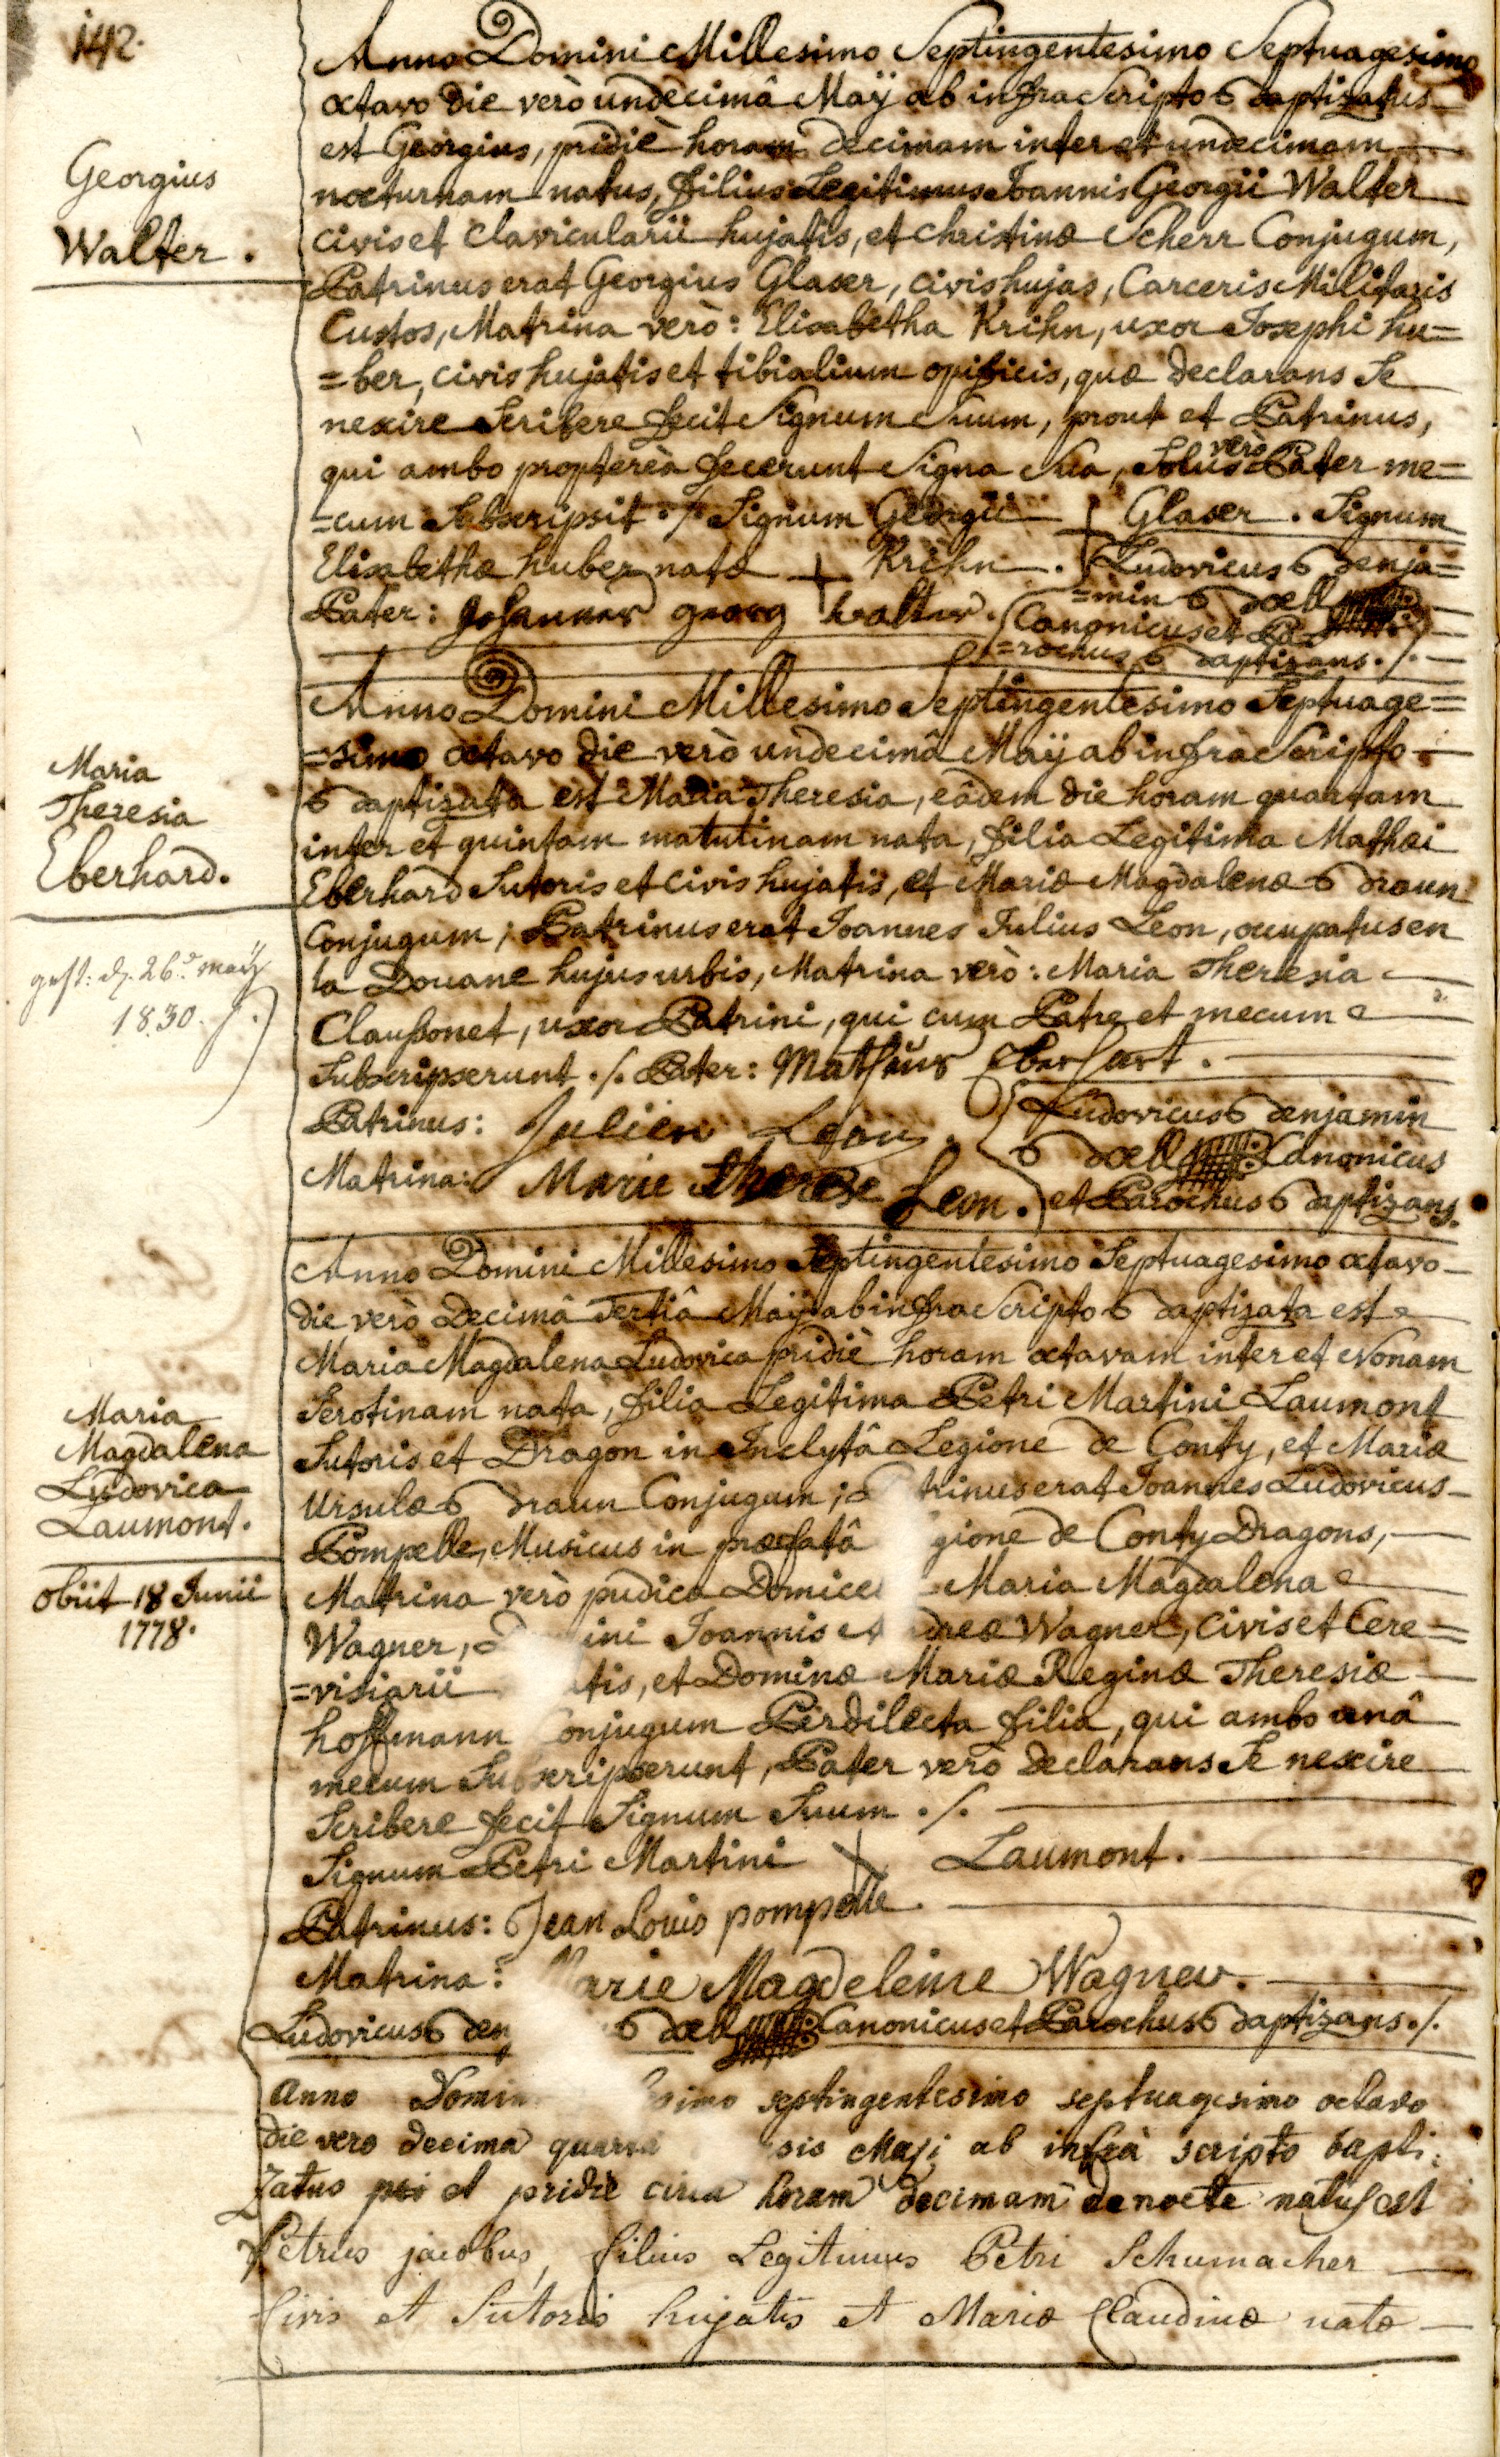 142.
Anno Domini Millesimo Septingentesimo Septuagesimo
octavo die verò undecimâ Maÿ ab infra Scripto Baptizatus
est Georgius, pridiè horam decimam inter et undecimam
nocturnam natus, filius Legitimus Joannis Georgii Walter
civis et clavicularii hujatis, et christinæ Scherr Conjugum,
Patrinus erat Georgius Glaser, civis hujas, Carceris Militaris
Custos, Matrina verò: Elisabetha Krihn, uxor Josephi hu=
=ber, civis hujatis et tibialium opificis, quæ declarans Se
nescire Scribere fecit Signum Suum, prout et Patrinus,
qui ambo proptereà fecerunt Signa Sua, Solus verò Pater me=
=cum Subscripsit ./. Signum Georgii + Glaser. Signum
Elisabethæ huber natæ + Krihn. Ludovicus Benja=
=min Boell
Pater: Johannes georg walter. Canonicus et Pa
=rochus Baptizans ./.
Georgius
Walter.
Anno Domini Millesimo Septingentesimo Septuage=
=simo octavo die verò undecimâ Maÿ ab infra Scripto
Baptizata est Maria Theresia, eâdem die horam quartam
inter et quintam matutinam nata, filia Legitima Mathæi
Eberhard Sutoris et civis hujatis, et Mariæ Magdalenæ Braun
Conjugum; Patrinus erat Joannes Julius Leon, occupatus en
la Douane hujus urbis, Matrina verò: Maria Theresia
Claußonet, uxor Patrini, qui cum Patre et mecum
Subscripserunt ./. Pater: Matheus Eberhart.
Patrinus: Julien Leon. Ludovicus Benjamin
Boell Canonicus
Matrina: Marie therese Leon. et Parochus Baptizans.
Maria
Theresia
Eberhard.
gest: d. 26.d maÿ
1830.
Anno Domini Millesimo Septingentesimo Septuagesimo octavo
die verò Decimâ Tertiâ Maÿ ab infra Scripto Baptizata est
Maria Magdalena Ludovica pridiè horam octavam inter et Nonam
Serotinam nata, filia Legitima Petri Martini Laumont
Sutoris et Dragon in Inclytâ Legione de Conty, et Mariæ
Ursulæ Braun Conjugum; P trinus erat Joannes Ludovicus
Pompelle, Musicus in præfatâ gione de Conty Dragons,
Matrina verò pudica Domice Maria Magdalena
Wagner, D ini Joannis A dreæ Wagner, Civis et Cere=
=visiarii atis, et Dominæ Mariæ Reginæ Theresiæ
hoffmann Conjugum Perdilecta filia, qui ambo unâ
mecum Subscripserunt, Pater verò declarans Se nescire
Scribere fecit Signum Suum ./.
Signum Petri Martini + Laumont.
Patrinus: Jean Louis pompelle.
Matrina: Marie Magdeleine Wagner.
Ludovicus Ben Boell Canonicus et Parochus Baptizans ./.
Maria
Magdalena
Ludovica
Laumont.
obiit 18 Junii
1778.
anno Domin simo septingentesimo septuagesimo octavo
die vero decima quarta sis Maji ab infrà scripto bapti:
zatus est pridie circa horam decimam de nocte natus est
Petrus jacobus, filius Legitimus Petri Schumacher
Civis et Sutoris hujatis et Mariæ Claudinæ natæ